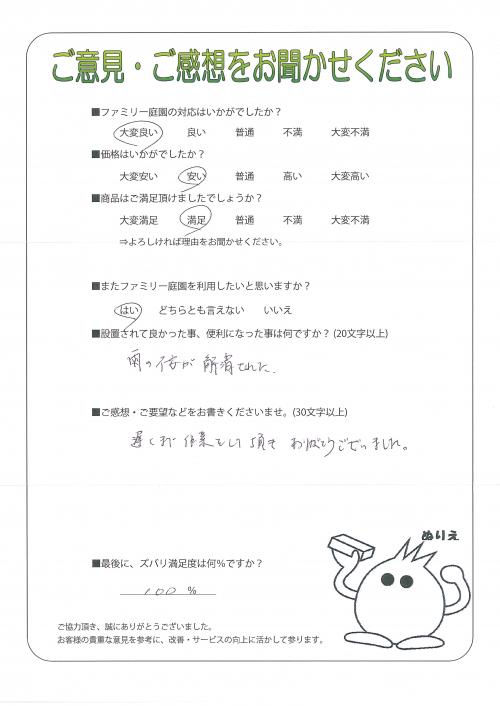 ご意見・ご感想をお聞かせください
■ファミリー庭園の対応はいかがでしたか？
大変良い 良い 普通 不満 大変不満
■価格はいかがでしたか？
大変安い 安い 普通 高い 大変高い
■商品はご満足頂けましたでしょうか？
大変満足 満足 普通 不満 大変不満
⇒よろしければ理由をお聞かせください。
■またファミリー庭園を利用したいと思いますか？
はい どちらとも言えない いいえ
■設置されて良かった事、便利になった事は何ですか？(20文字以上)
雨の不安が解消された.
■ご感想・ご要望などをお書きくださいませ。(30文字以上)
遅くまで作業をして頂き ありがとうございました。
ぬりえ
■最後に、ズバリ満足度は何％ですか？
100 ％
ご協力頂き、誠にありがとうございました。
お客様の貴重な意見を参考に、改善・サービスの向上に活かして参ります。